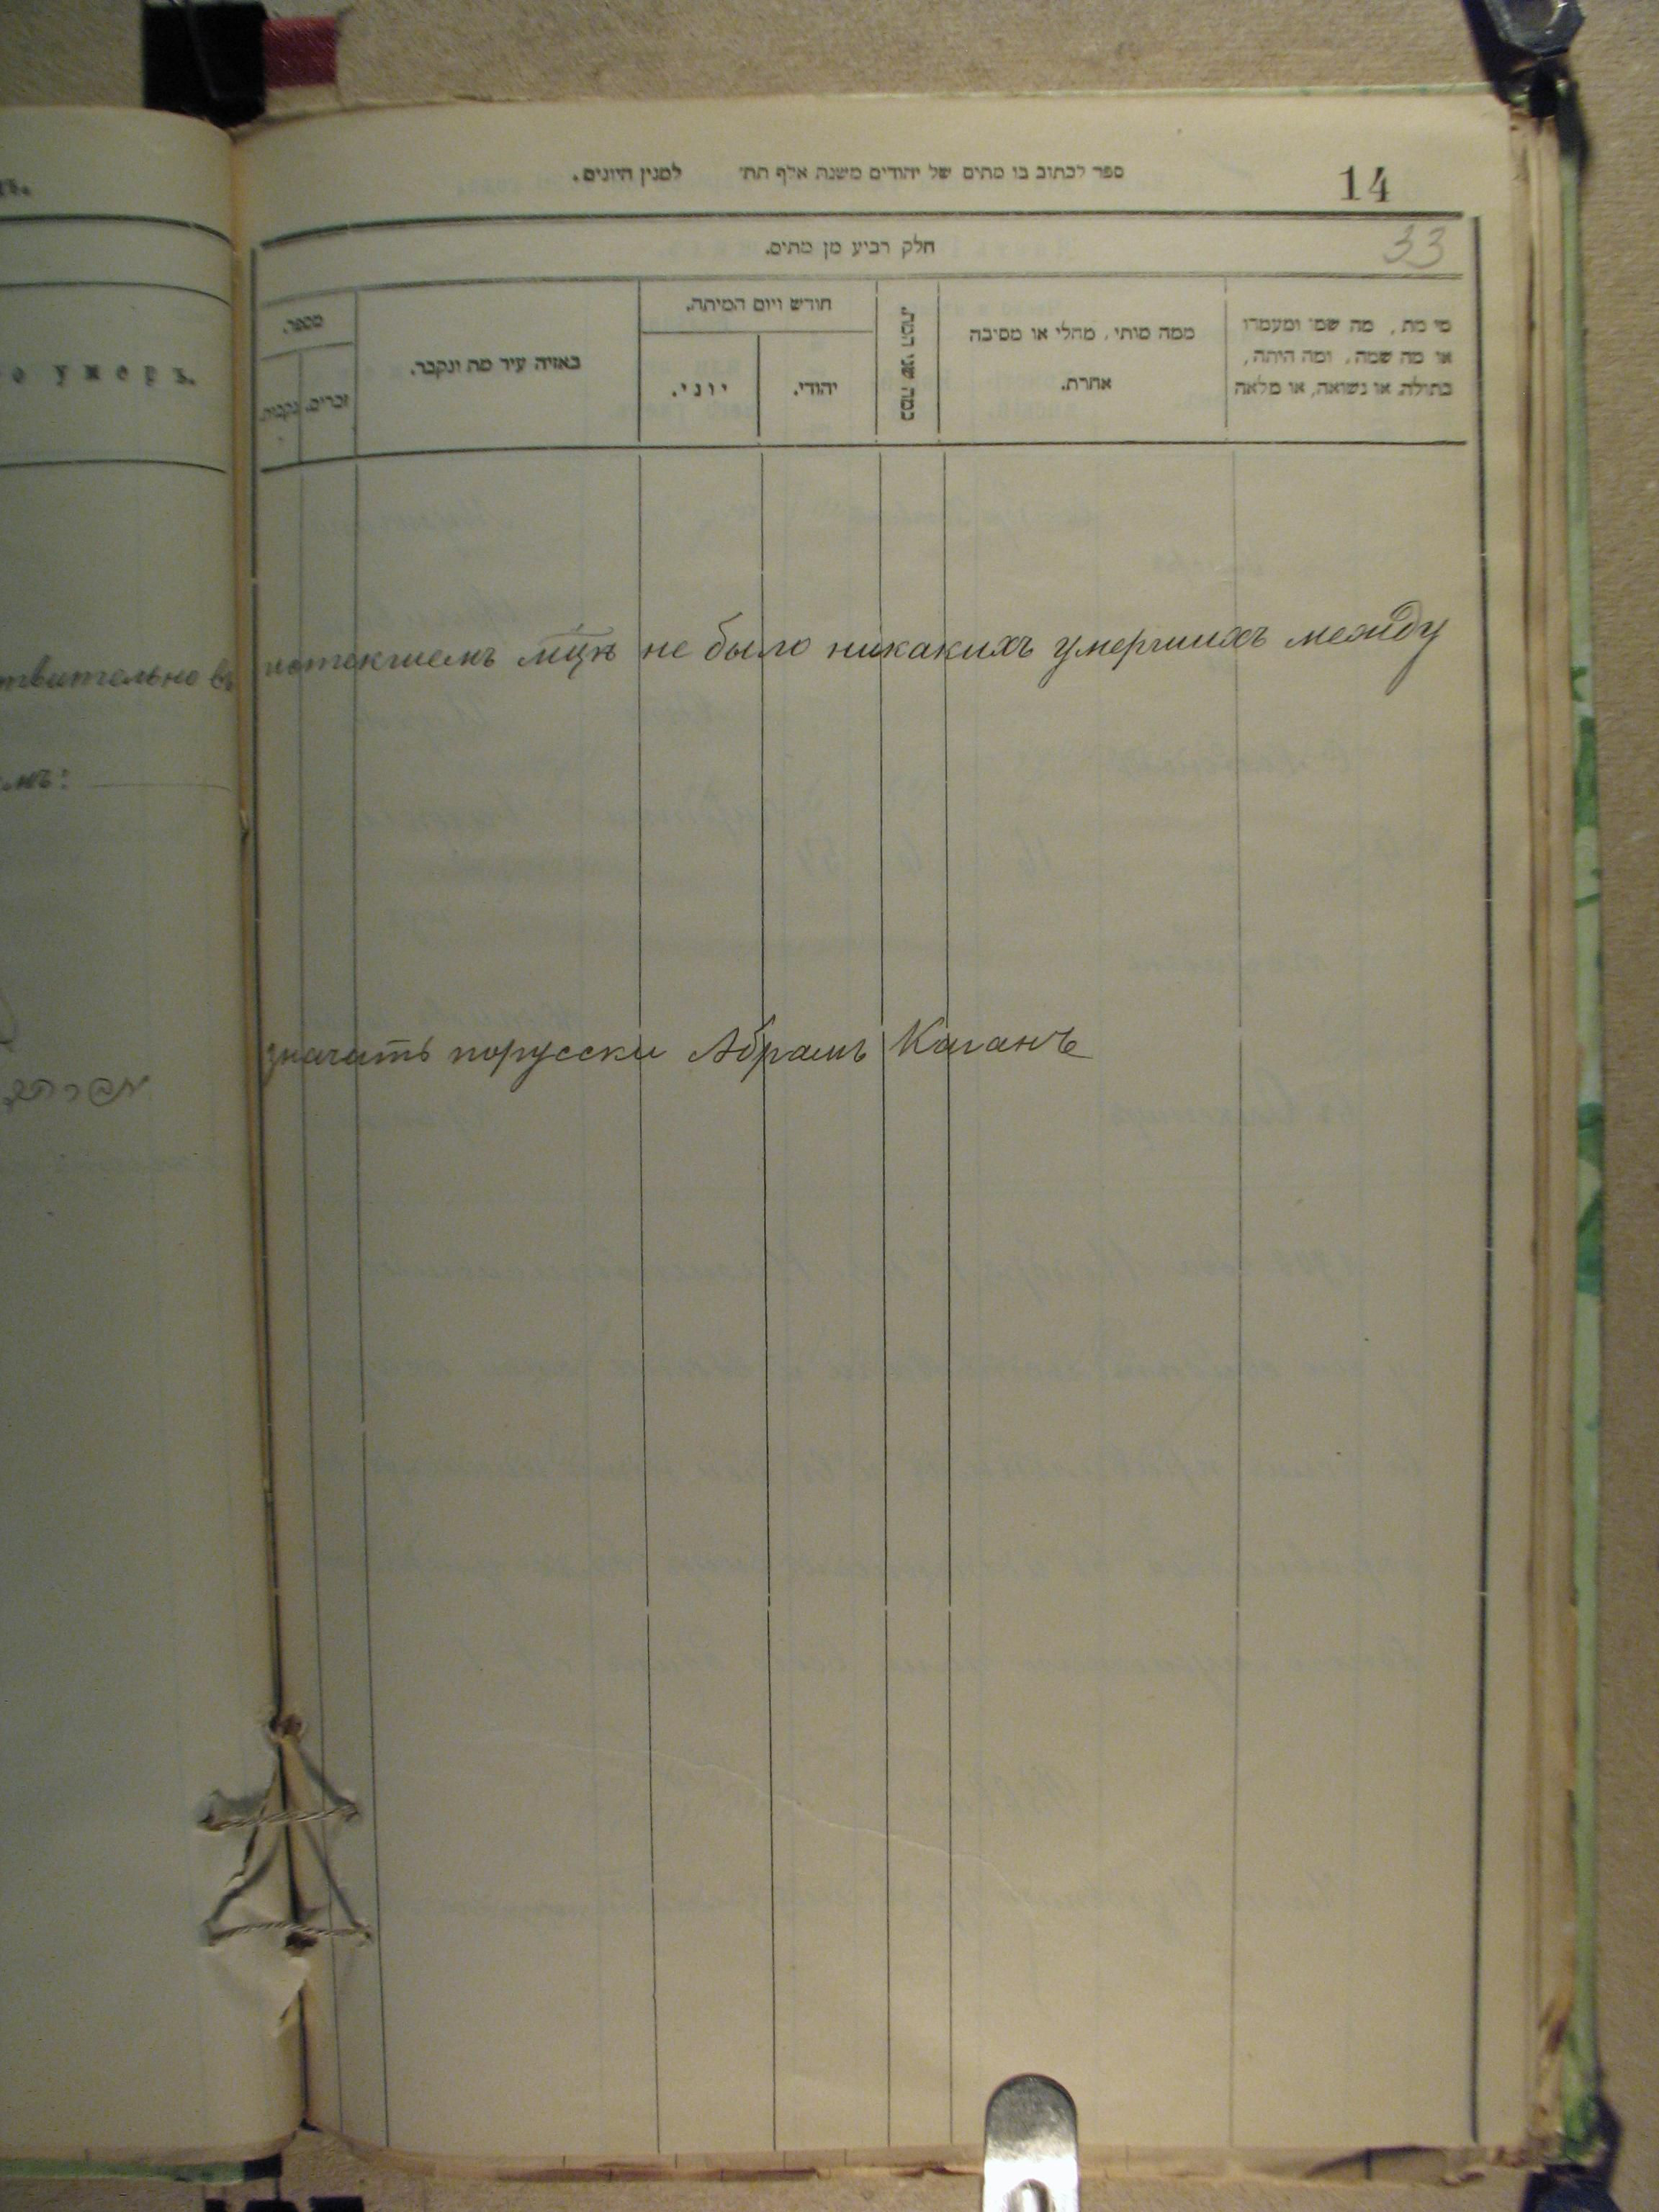 ספר לכתוב בו מתים של יהודים משנת אלף תת׳ למנין היונים.
14
33
חלק רביע מן מתים.
מי מת, מה שמו ומעמדו
או מה שמה, ומה היתה,
בתולה או נשואה, או מלאה
ממה מותי, מחלי או מסיבה
אחרת.
כמה שני המת.
חודש ויום המיתה.
יהודי.
יוני.
באיזה עיר מת ונקבר.
מספר.
זכרים.
נקבות.
о умеръ.
твительно въ истекшемъ мцѣ не было никакихъ умершихъ между
мъ:
значатъ порусски Абрамъ Каганъ